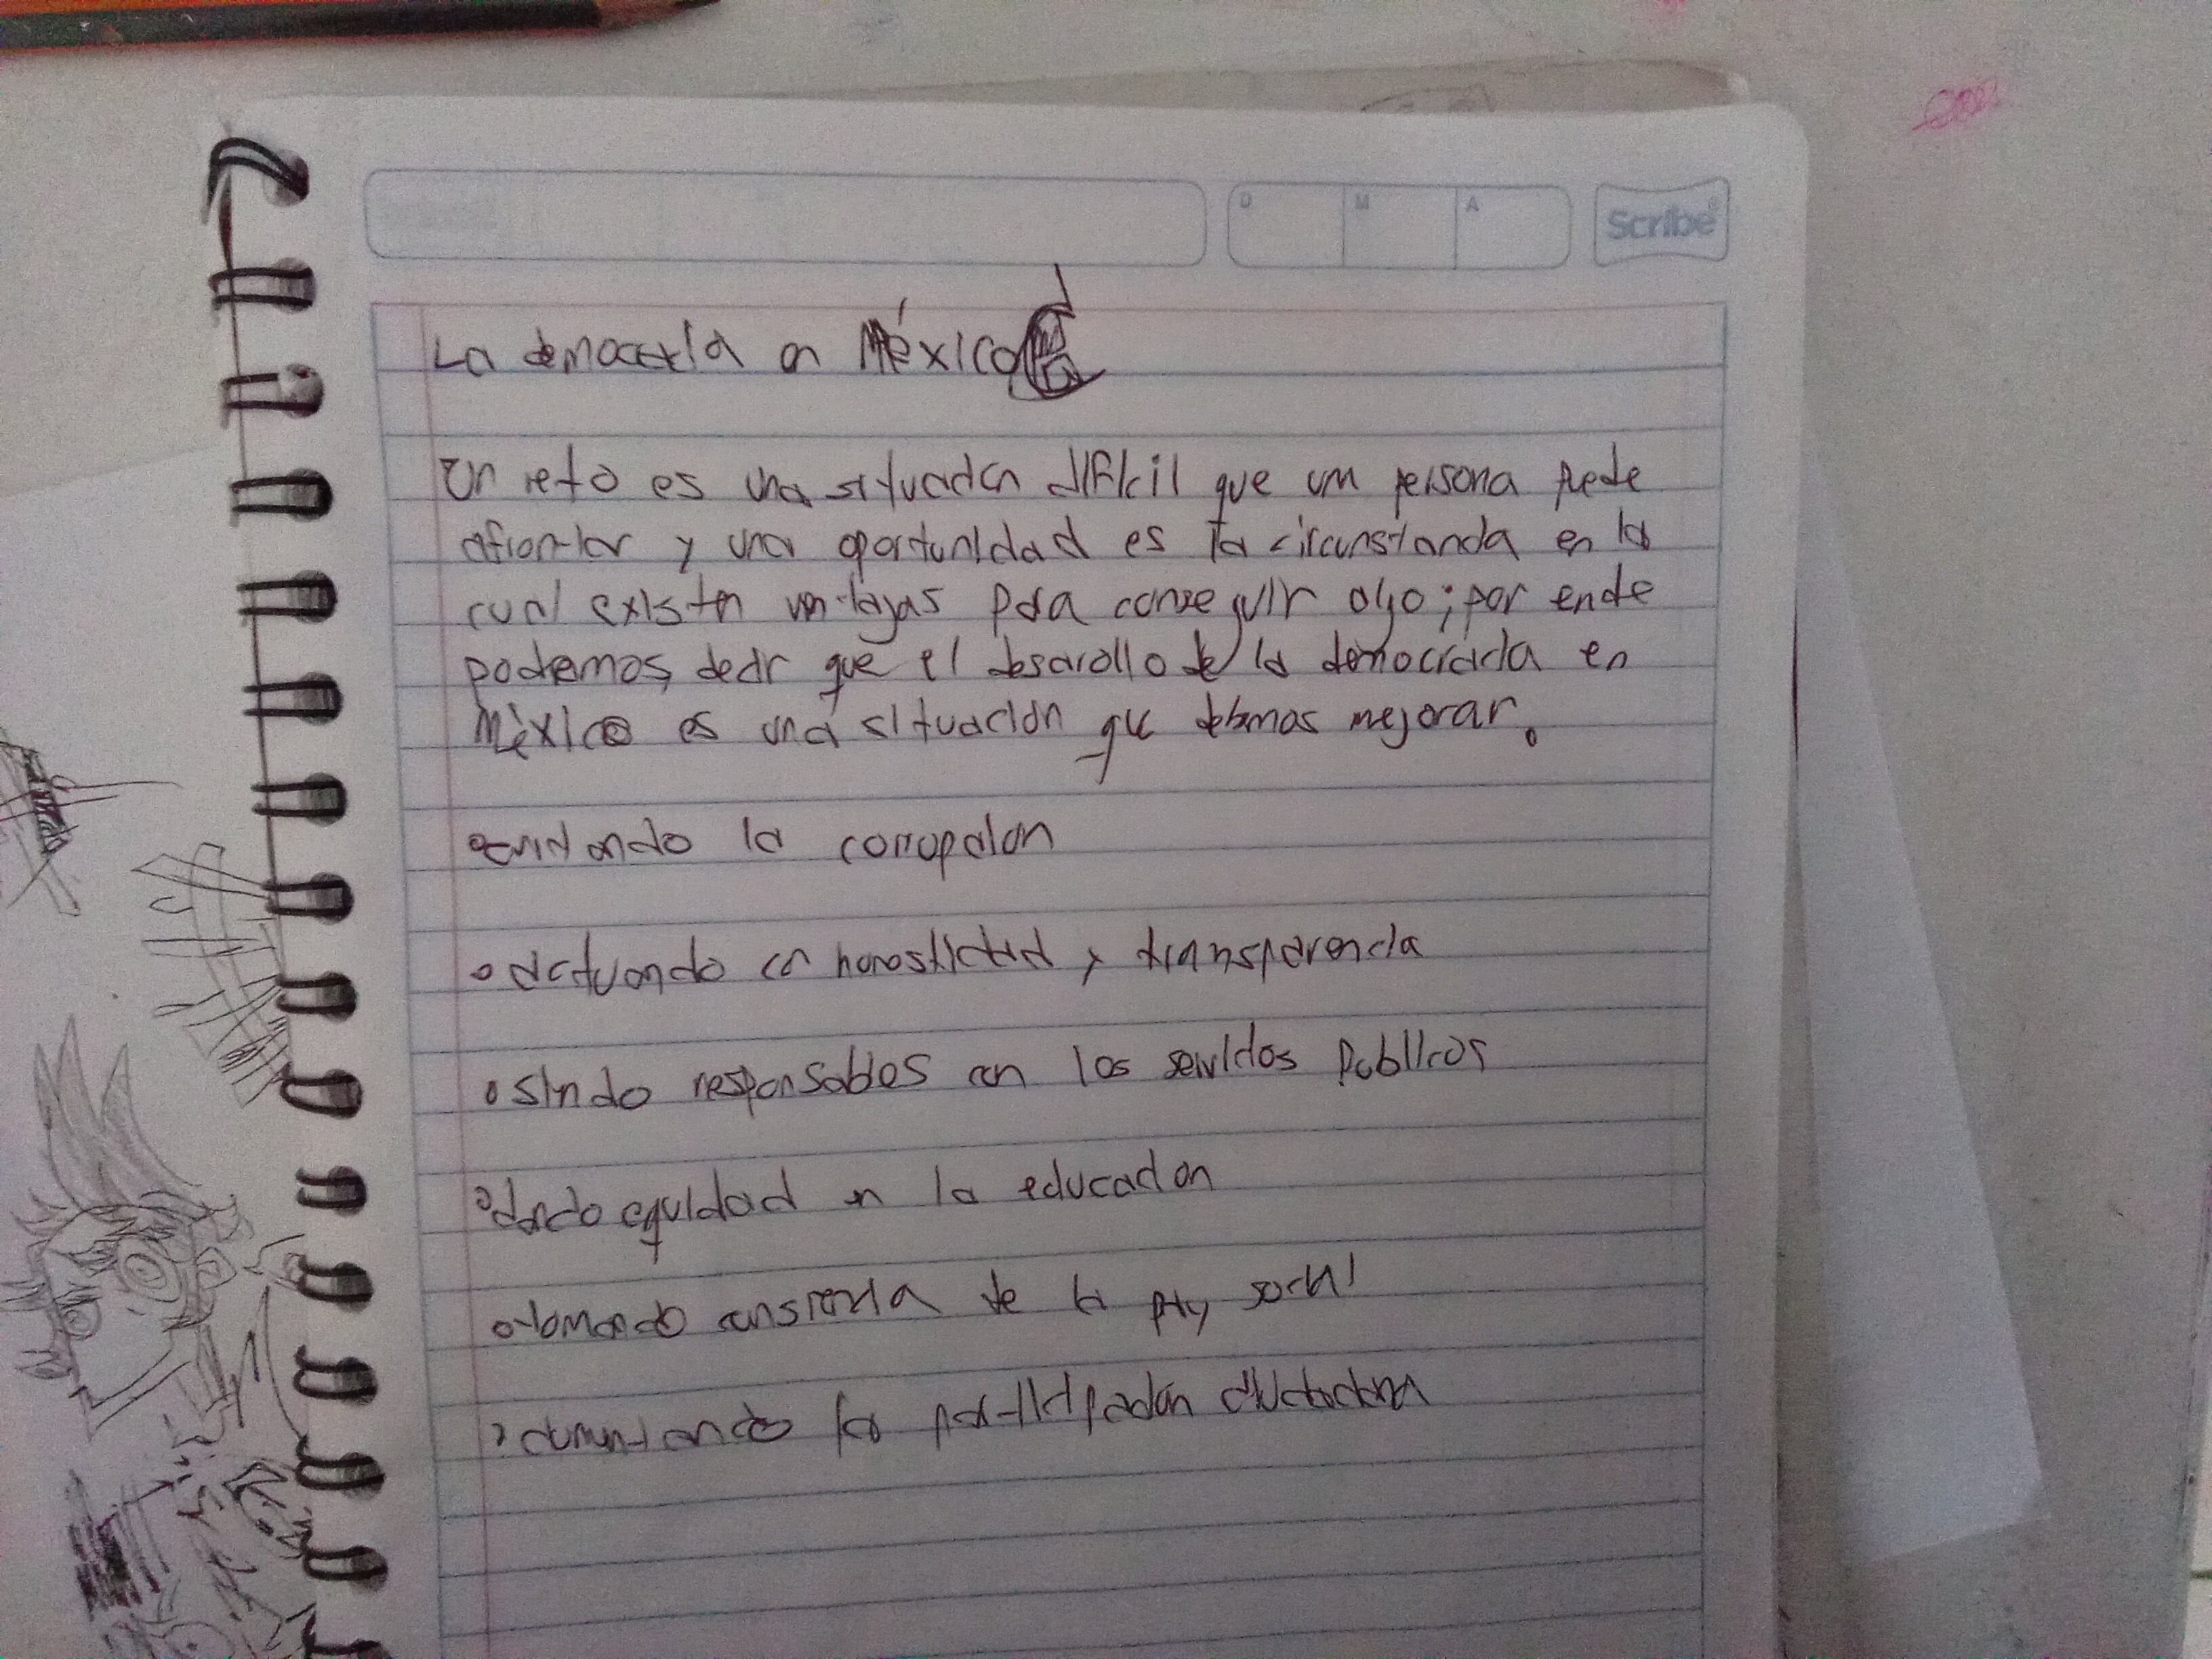 D M A Scribe
La democracia en México
Un reto es una situacion dificil que una persona puede
afrontar y una oportunidad es la circunstancia en la
cual existen ventajas para conseguir algo; por ende
podemos decir que el desarollo de la democracia en
México es una situación que debemos mejorar.
evitando la corrupcion
actuando con honestidad y transparencia
siendo responsables con los servicios publicos
dando equidad en la educacion
tomando consiencia de la social
aumentando la participación ciudadana